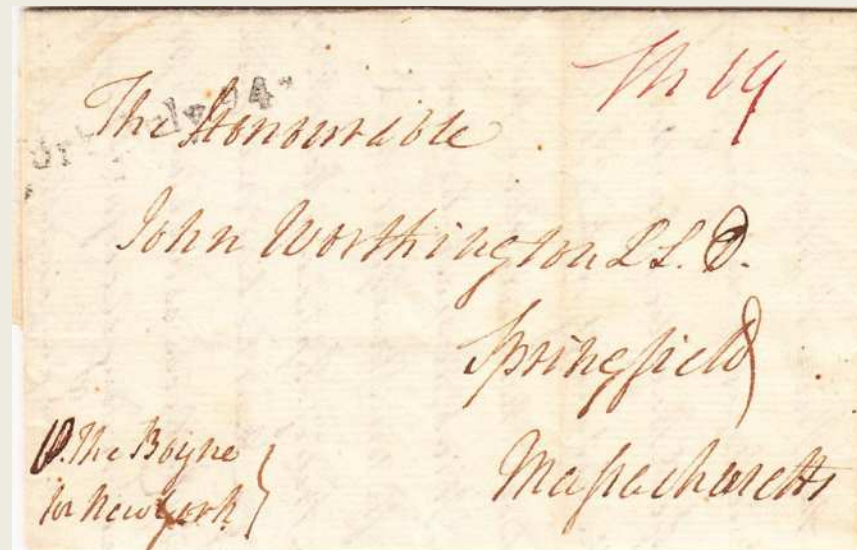 Sh 19
The Honourable
John Worthington LL. D.
Springfield
Massachusetts
The Boyne
for New york